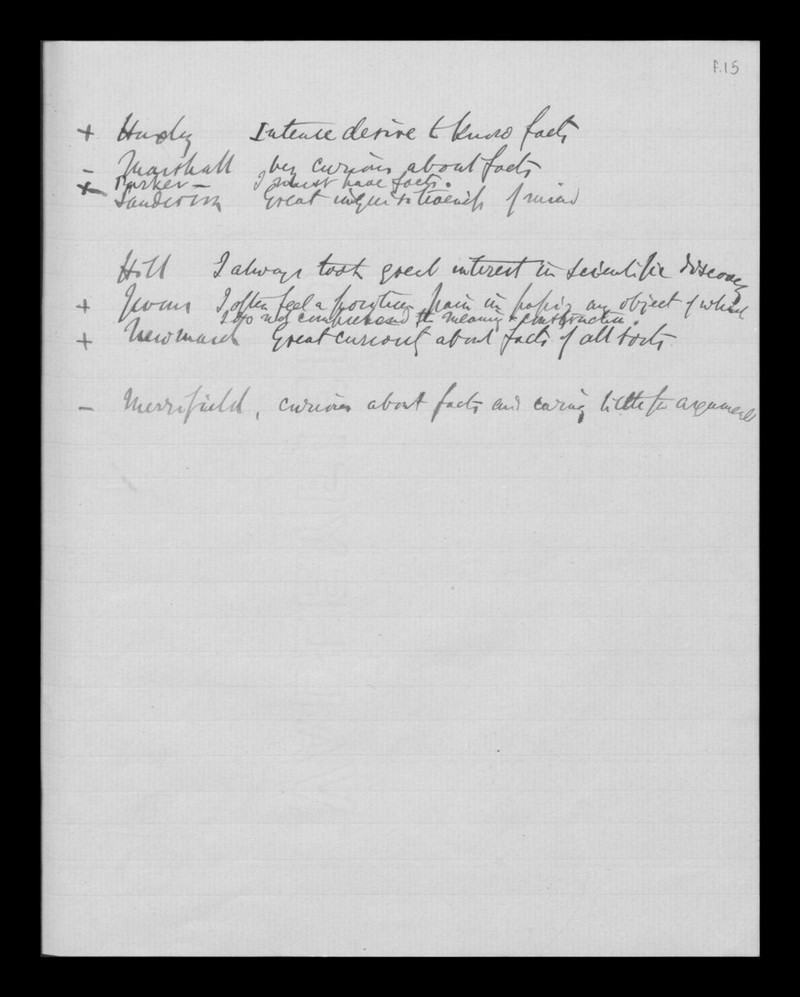 F.15
+ Huxley Intense desire to know facts
- Marshall very curious about facts
Parker - I must have facts.
+ Sanderson Great inquisitiveness of mind
Hill I always took great interest in scientific discovery
+ Jevons I often feel a positive pain in passing any object of which
I do not comprehend the meaning & construction.
+ Newmarch Great curiosity about facts of all sorts.
- Merrifield, curious about facts and caring little for arguments